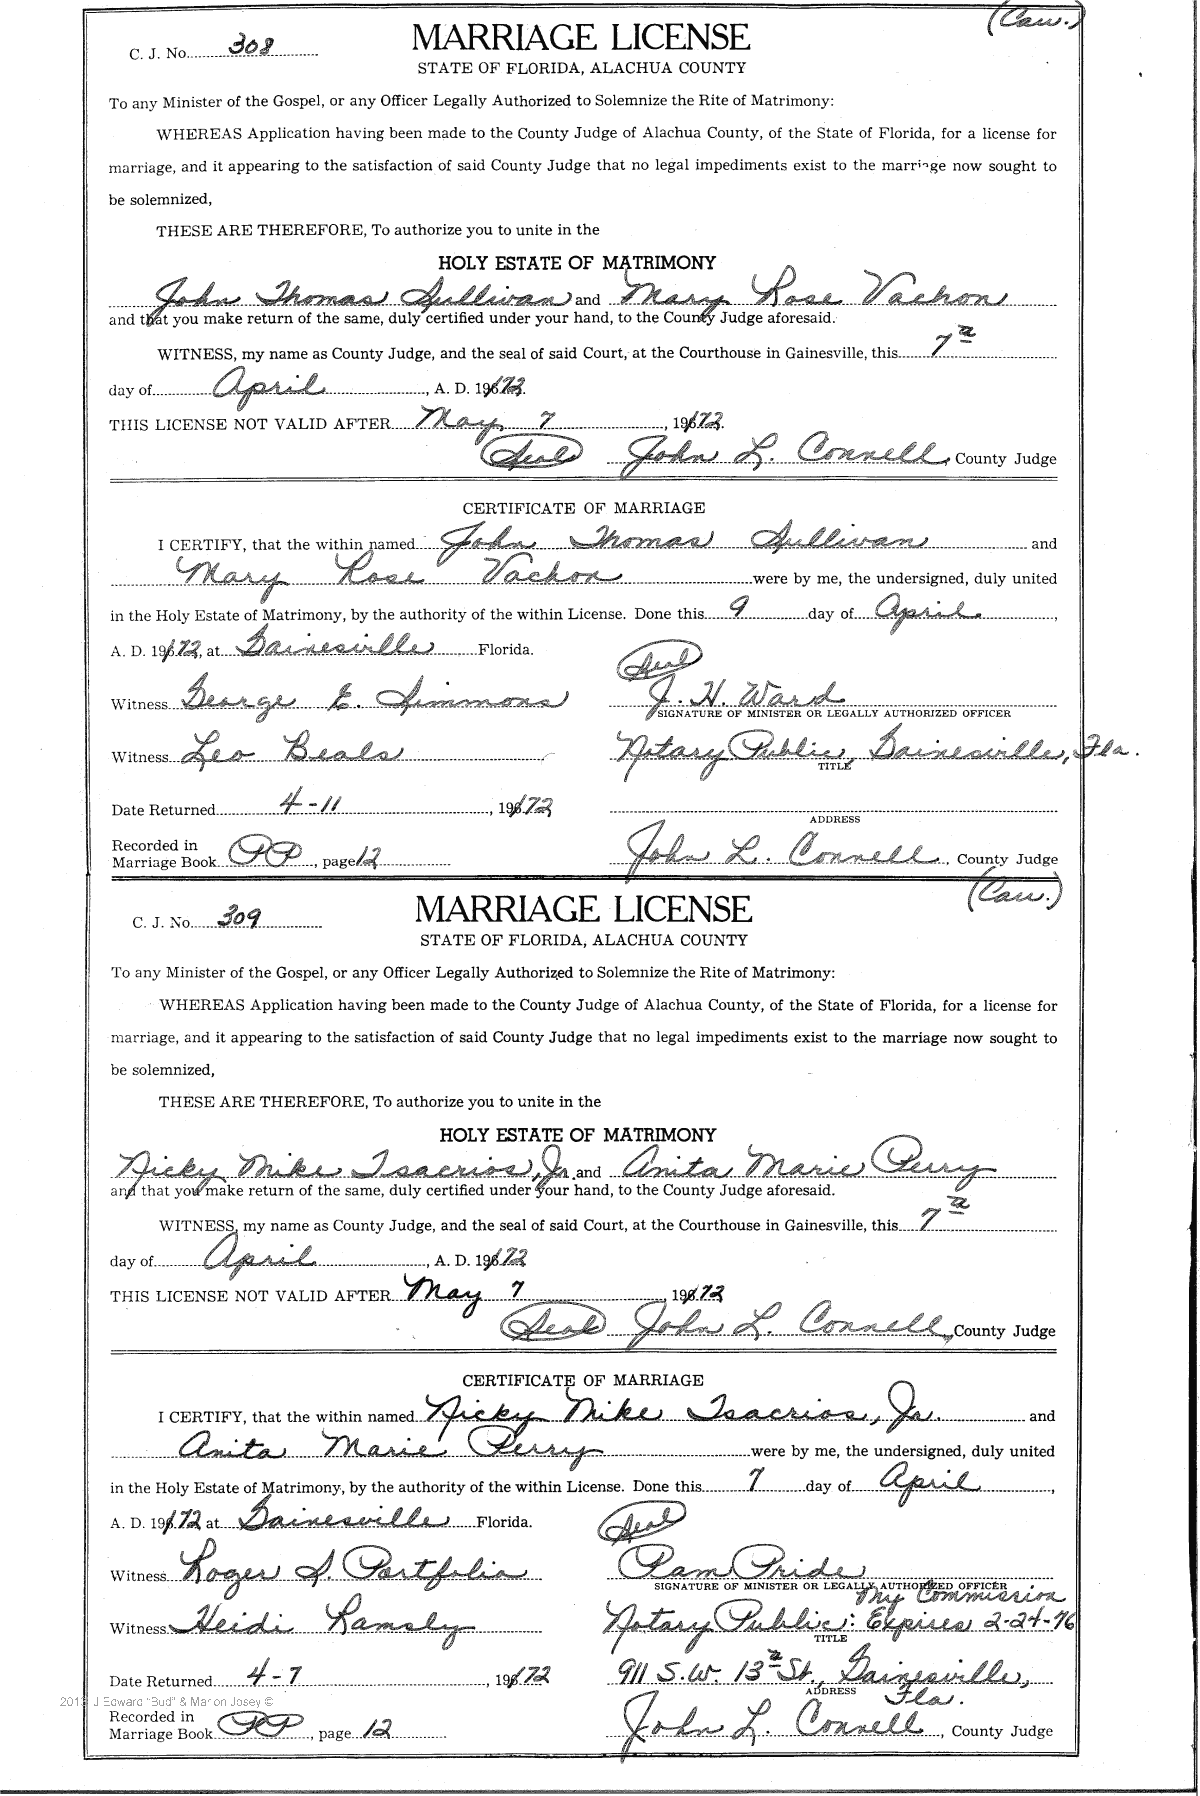 (Cau.)
C. J. No. 308
MARRIAGE LICENSE
STATE OF FLORIDA, ALACHUA COUNTY
To any Minister of the Gospel, or any Officer Legally Authorized to Solemnize the Rite of Matrimony:
WHEREAS Application having been made to the County Judge of Alachua County, of the State of Florida, for a license for
marriage, and it appearing to the satisfaction of said County Judge that no legal impediments exist to the marriage now sought to
be solemnized,
THESE ARE THEREFORE, To authorize you to unite in the
HOLY ESTATE OF MATRIMONY
John Thomas Sullivan and Mary Rose Vachon
and that you make return of the same, duly certified under your hand, to the County Judge aforesaid.
WITNESS, my name as County Judge, and the seal of said Court, at the Courthouse in Gainesville, this 7th
day of April, A. D. 1972.
THIS LICENSE NOT VALID AFTER May 7, 1972.
(Seal) John L. Connell, County Judge
CERTIFICATE OF MARRIAGE
I CERTIFY, that the within named John Thomas Sullivan and
Mary Rose Vachon were by me, the undersigned, duly united
in the Holy Estate of Matrimony, by the authority of the within License. Done this 9 day of April,
A. D. 1972, at Gainesville Florida.
(Seal)
Witness George E. Simmons J. H. Ward
SIGNATURE OF MINISTER OR LEGALLY AUTHORIZED OFFICER
Witness Leo Beals Notary Public, Gainesville, Fla.
TITLE
Date Returned 4-11, 1972
ADDRESS
Recorded in
Marriage Book PP, page 12 John L. Connell, County Judge
(Cau.)
C. J. No. 309
MARRIAGE LICENSE
STATE OF FLORIDA, ALACHUA COUNTY
To any Minister of the Gospel, or any Officer Legally Authorized to Solemnize the Rite of Matrimony:
WHEREAS Application having been made to the County Judge of Alachua County, of the State of Florida, for a license for
marriage, and it appearing to the satisfaction of said County Judge that no legal impediments exist to the marriage now sought to
be solemnized,
THESE ARE THEREFORE, To authorize you to unite in the
HOLY ESTATE OF MATRIMONY
Nicky Mike Tsacrios, Jr. and Anita Marie Perry
and that you make return of the same, duly certified under your hand, to the County Judge aforesaid.
WITNESS, my name as County Judge, and the seal of said Court, at the Courthouse in Gainesville, this 7th
day of April, A. D. 1972
THIS LICENSE NOT VALID AFTER May 7, 1972
(Seal) John L. Connell, County Judge
CERTIFICATE OF MARRIAGE
I CERTIFY, that the within named Nicky Mike Tsacrios, Jr. and
Anita Marie Perry were by me, the undersigned, duly united
in the Holy Estate of Matrimony, by the authority of the within License. Done this 7 day of April,
A. D. 1972 at Gainesville Florida.
(Seal)
Witness Roger S. Portfolia Pam Pride
SIGNATURE OF MINISTER OR LEGALLY AUTHORIZED OFFICER
My Commission
Witness Heidi Ramsly Notary Public: Expires 2-24-76
TITLE
Date Returned 4-7, 1972 911 S.W. 13th St., Gainesville,
ADDRESS Fla.
2013 J Edward "Bud" & Marion Josey ©
Recorded in
Marriage Book PP, page 12 John L. Connell, County Judge